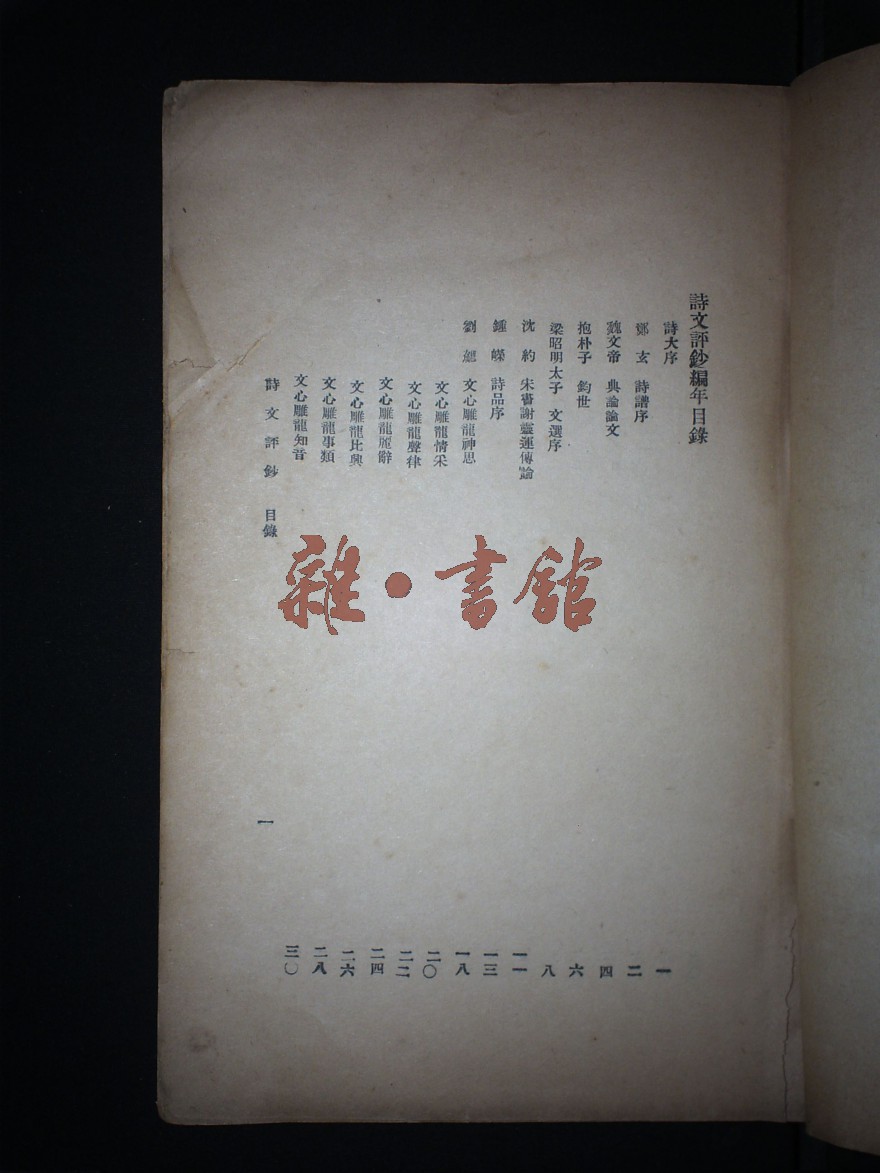 詩文評鈔編年目錄
詩大序 一
鄭玄 詩譜序 二
魏文帝 典論論文 四
抱朴子 鈞世 六
梁昭明太子 文選序 八
沈約 宋書謝靈運傳論 一一
鍾嶸 詩品序 一三
劉勰 文心雕龍神思 一八
文心雕龍情采 二〇
文心雕龍聲律 二二
文心雕龍麗辭 二四
文心雕龍比興 二六
文心雕龍事類 二八
文心雕龍知音 三〇
詩文評鈔 目錄 一
雜·書館